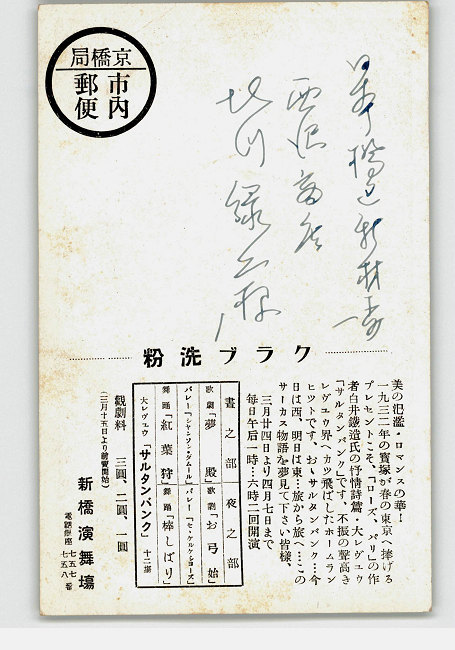 京橋局
市内
郵便
日本橋区新材木
西沢商店
北川緑雨様
クラブ洗粉
美の氾濫・ロマンスの華！
一九三二年の寶塚が春の東京へ捧げる
プレゼントこそ、「ローズ、パリ」の作
者白井鐵造氏の抒情詩篇・大レヴュウ
「サルタンバンク」です、不振の聲高き
レヴュウ界へカッ飛ばしたホームラン
ヒットです、おゝサルタンバンク…今
日は西、明日は東…旅から旅へ…この
サーカス物語を夢見て下さい皆樣、
三月廿四日より四月七日まで
毎日午后一時…六時二回開演
晝之部 夜之部
歌劇「夢殿」 歌劇「お弓始」
バレー「シャンソン・ダムール」 バレー「セ・ケルケシヨーズ」
舞踊「紅葉狩」 舞踊「棒しばり」
大レヴュウ「サルタンバンク」十二場
觀劇料 三圓、二圓、一圓
（三月十五日より前賣開始）
新橋演舞場
電話銀座 七五七 七五八 番